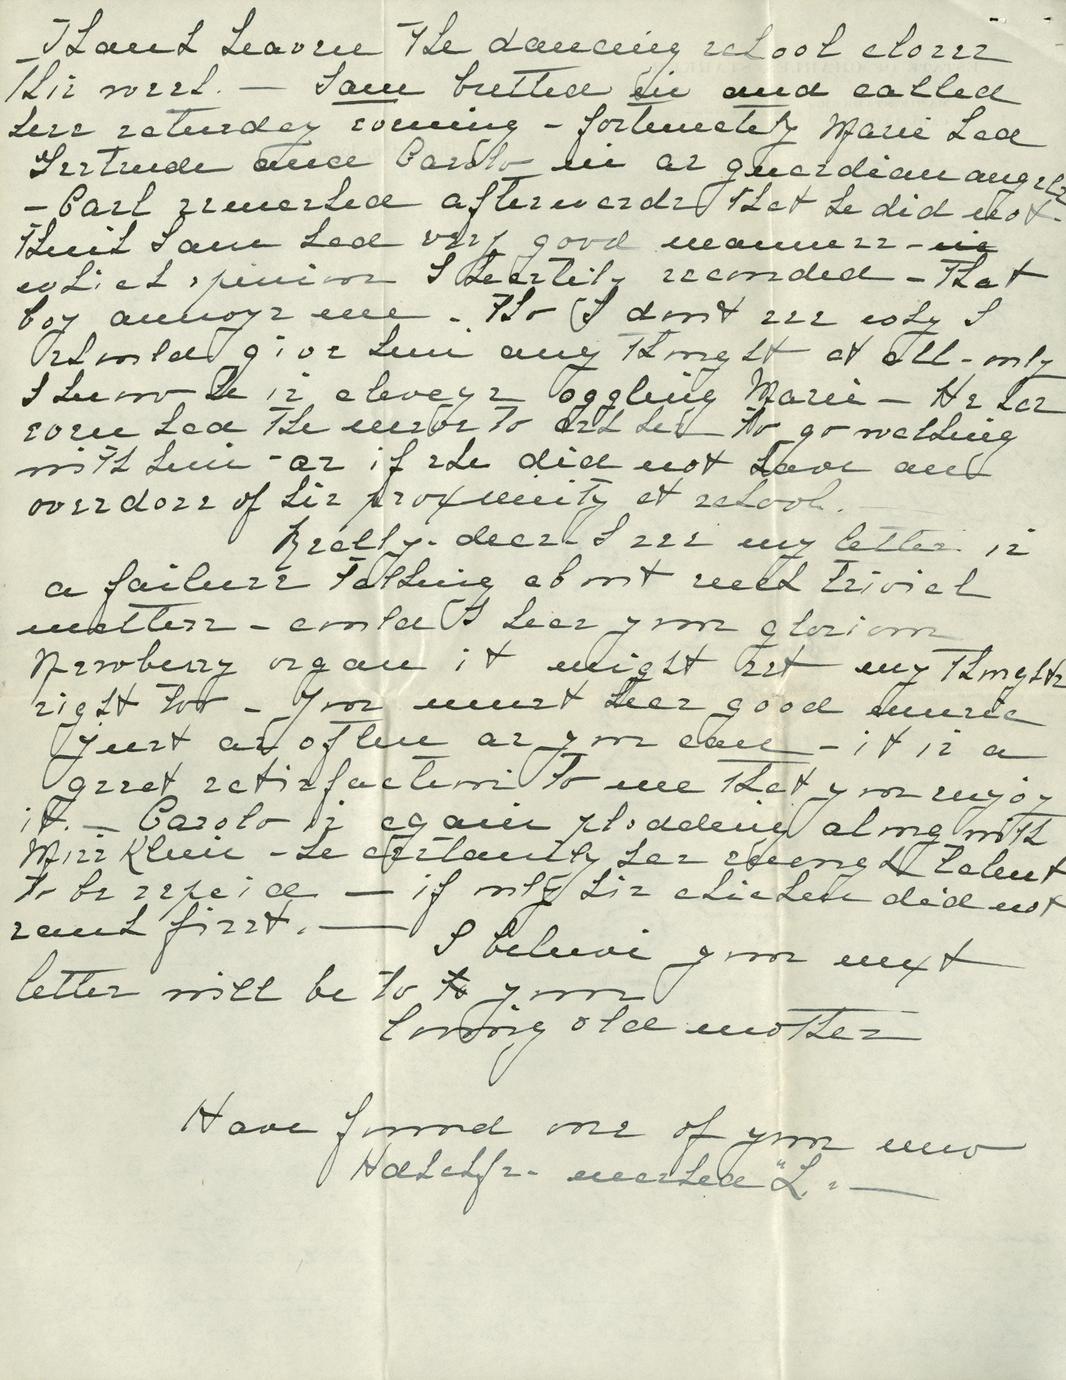 Thank heaven the dancing school closes
this week. — Sam butted in and called
here saturday evening - fortunately Marie had
Gertrude and Carolo in as guardian angels
- Carl remarked afterwards that he did not
think Sam had very good manners -
which opinion I heartily seconded - That
boy annoys me - Tho I dont see why I
should give him any thought at all - only
I know he is always oggling Marie - He has
even had the nerve to ask her to go walking
with him - as if she did not have an
overdose of his proximity at school.
Really - dear I see my letter is
a failure talking about such trivial
matters - could I hear your glorious
Newberry organ it might set my thoughts
right too - You must hear good music
just as often as you can - it is a
great satisfaction to me that you enjoy
it. — Carolo is again plodding along with
Miss Klein - he certainly has enough talent
to be repaid — if only his chicken did not
rank first. —
I believe your next
letter will be to to your
loving old mother
Have found one of your new
Hdkchfs - marked "L. —